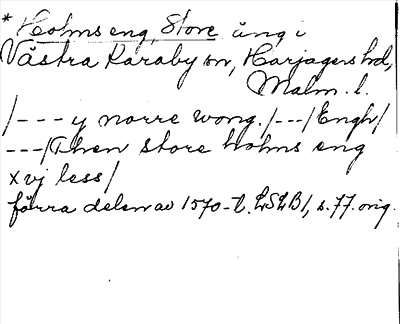 * Holms eng, Store äng i
Västra Karaby sn, Harjagers hd,
Malm. l.
/--- y norre wong. /---/ Engh/
---/ Then store holms eng
xvj less/
förra delen av 1570-t. LSLB1, s. 77. orig.